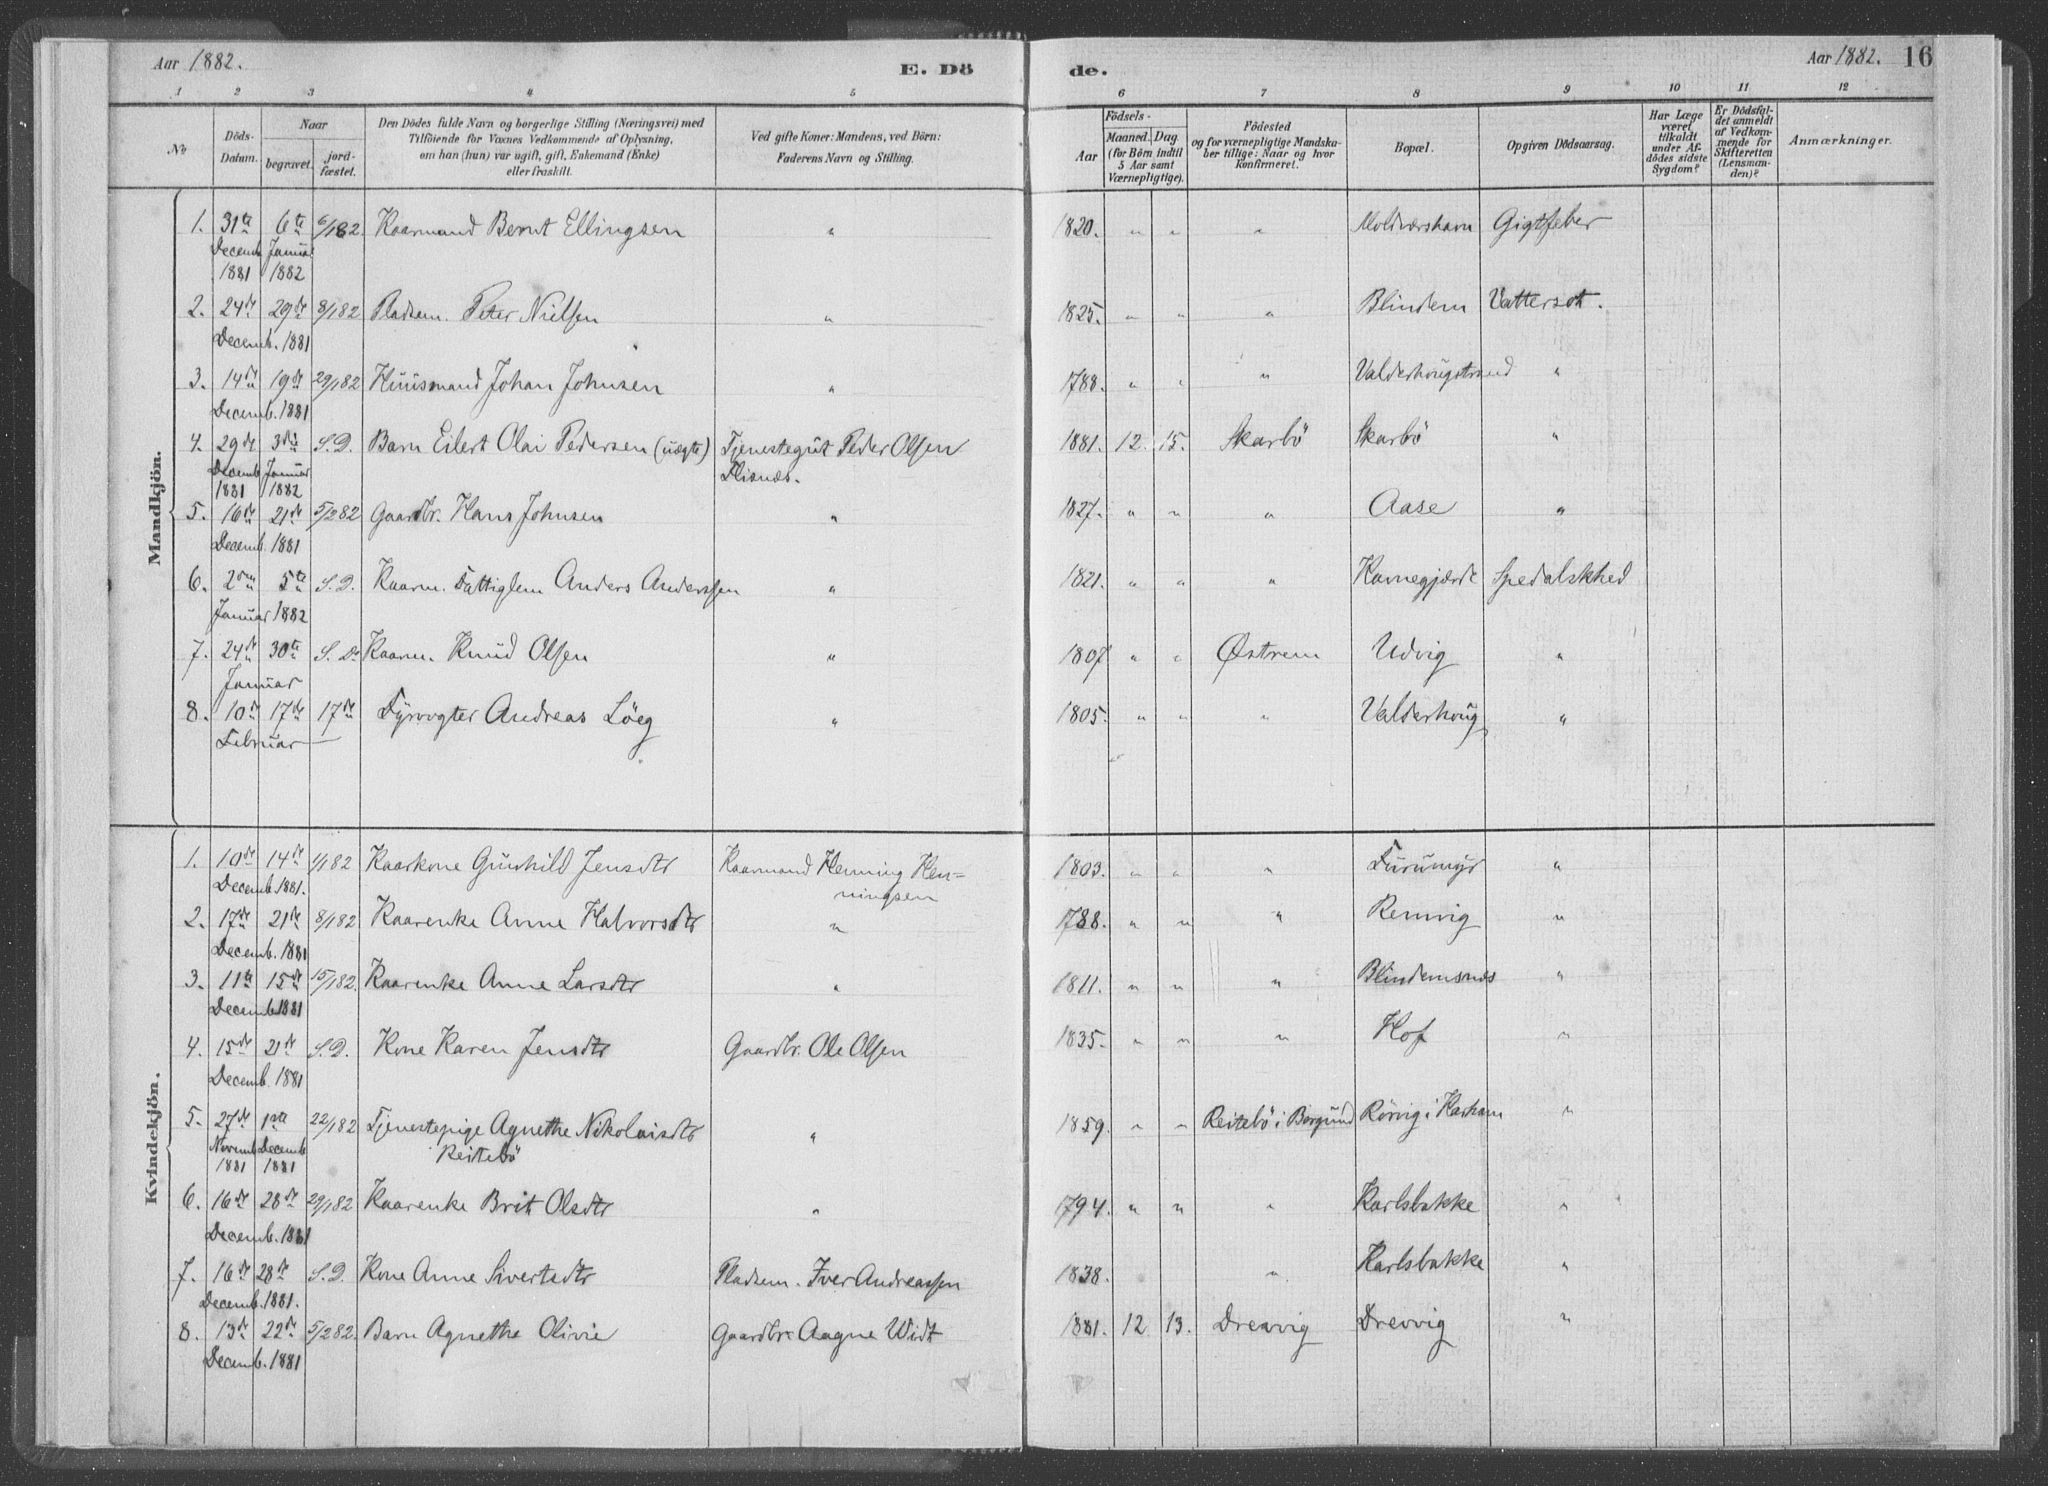 Aar 1882. E. Dö de. Aar 1882. 16
1 2 3 4 5 6 7 8 9 10 11 12
No
Döds-Datum.
Naar
begravet.
jord-fæstet.
Den Dödes fulde Navn og borgerlige Stilling (Næringsvei) med
Tilföiende for Vaxnes Vedkommende af Oplysning,
om han (hun) var ugift, gift, Enkemand (Enke)
eller fraskilt.
Ved gifte Koner: Mandens, ved Börn:
Faderens Navn og Stilling.
Födsels-
Aar
Maaned. Dag
(for Börn indtil
5 Aar samt
Værnepligtige).
Födested
og for værnepligtige Mandska-
ber tillige: Naar og hvor
Konfirmeret.
Bopæl.
Opgiven Dödsaarsag.
Har Læge
været
tilkaldt
under Af-
dödes sidste
Sygdom?
Er Dödsfal-
det anmeldt
af Vedkom-
mende for
Skifteretten
(Lensman-
den)?
Anmærkninger.
Mandkjön.
1. 31te 6te 6/182 Kaarmand Bernt Ellingsen " 1820. " " " Moldværshavn Gigtfeber
Decemb. Januar
1881 1882
2. 24de 29de 8/182 Pladsm. Peter Nielsen " 1825. " " " Blindem Vattersot.
Decemb. 1881
3. 14de 19de 29/182 Huusmand Johan Johnsen " 1788. " " " Valderhougstrand "
Decemb. 1881
4. 29de 3die S.D. Barn Eilert Olai Pedersen (uægte) Tjenestegut Peder Olsen 1881. 12. 15. Skarbö Skarbö "
Decemb. Januar Flisnæs.
1881 1882
5. 16de 21de 5/282 Gaardbr. Hans Johnsen " 1827. " " " Aase "
Decemb. 1881
6. 2den 5te S.D. Kaarm. Fattiglem Anders Anderssen " 1821. " " " Havnegjærde Spedalskhed
Januar 1882
7. 24de 30te S. D. Kaarm. Knud Olsen " 1807 " " Østrem Udvig "
Januar
8. 10de 17de 17de Fyrvogter Andreas Löeg " 1805. " " " Valderhoug "
Februar
Kvindekjön.
1. 10de 14de 1/182 Kaarkone Gunhild Jensdtr Kaarmand Henning Hen= 1803. " " " Furumyr "
Decemb. 1881. ningsen
2. 17de 21de 8/182 Kaarenke Anne Halvorsdtr " 1788. " " " Remvig "
Decemb. 1881
3. 11te 15de 15/182. Kaarenke Anne Larsdtr " 1811. " " " Blindemsnæs "
Decemb. 1881
4. 15de 21de S.D. Kone Karen Jensdtr Gaardbr. Ole Olsen 1835. " " " Hof "
Decemb. 1881
5. 27de 1ste 22/182 Tjenestepige Agnethe Nikolaisdtr " 1859. " " Reitebö i Borgund Rörvig i Harham "
Novemb. Decemb. Reitebö
1881 1881
6. 16de 28de 29/182 Kaarenke Brit Olsdtr " 1794. " " " Karlsbakke "
Decemb. 1881
7. 16de 28de S.D. Kone Anne Sivertsdtr Pladsm. Iver Andreassen 1838. " Karlsbakke "
Decemb. 1881.
8. 13de 22de 5/282. Barn Agnethe Olivie Gaardbr. Aagne Widt 1881. 12. 13. Drevvig Drevvig "
Decemb. 1881